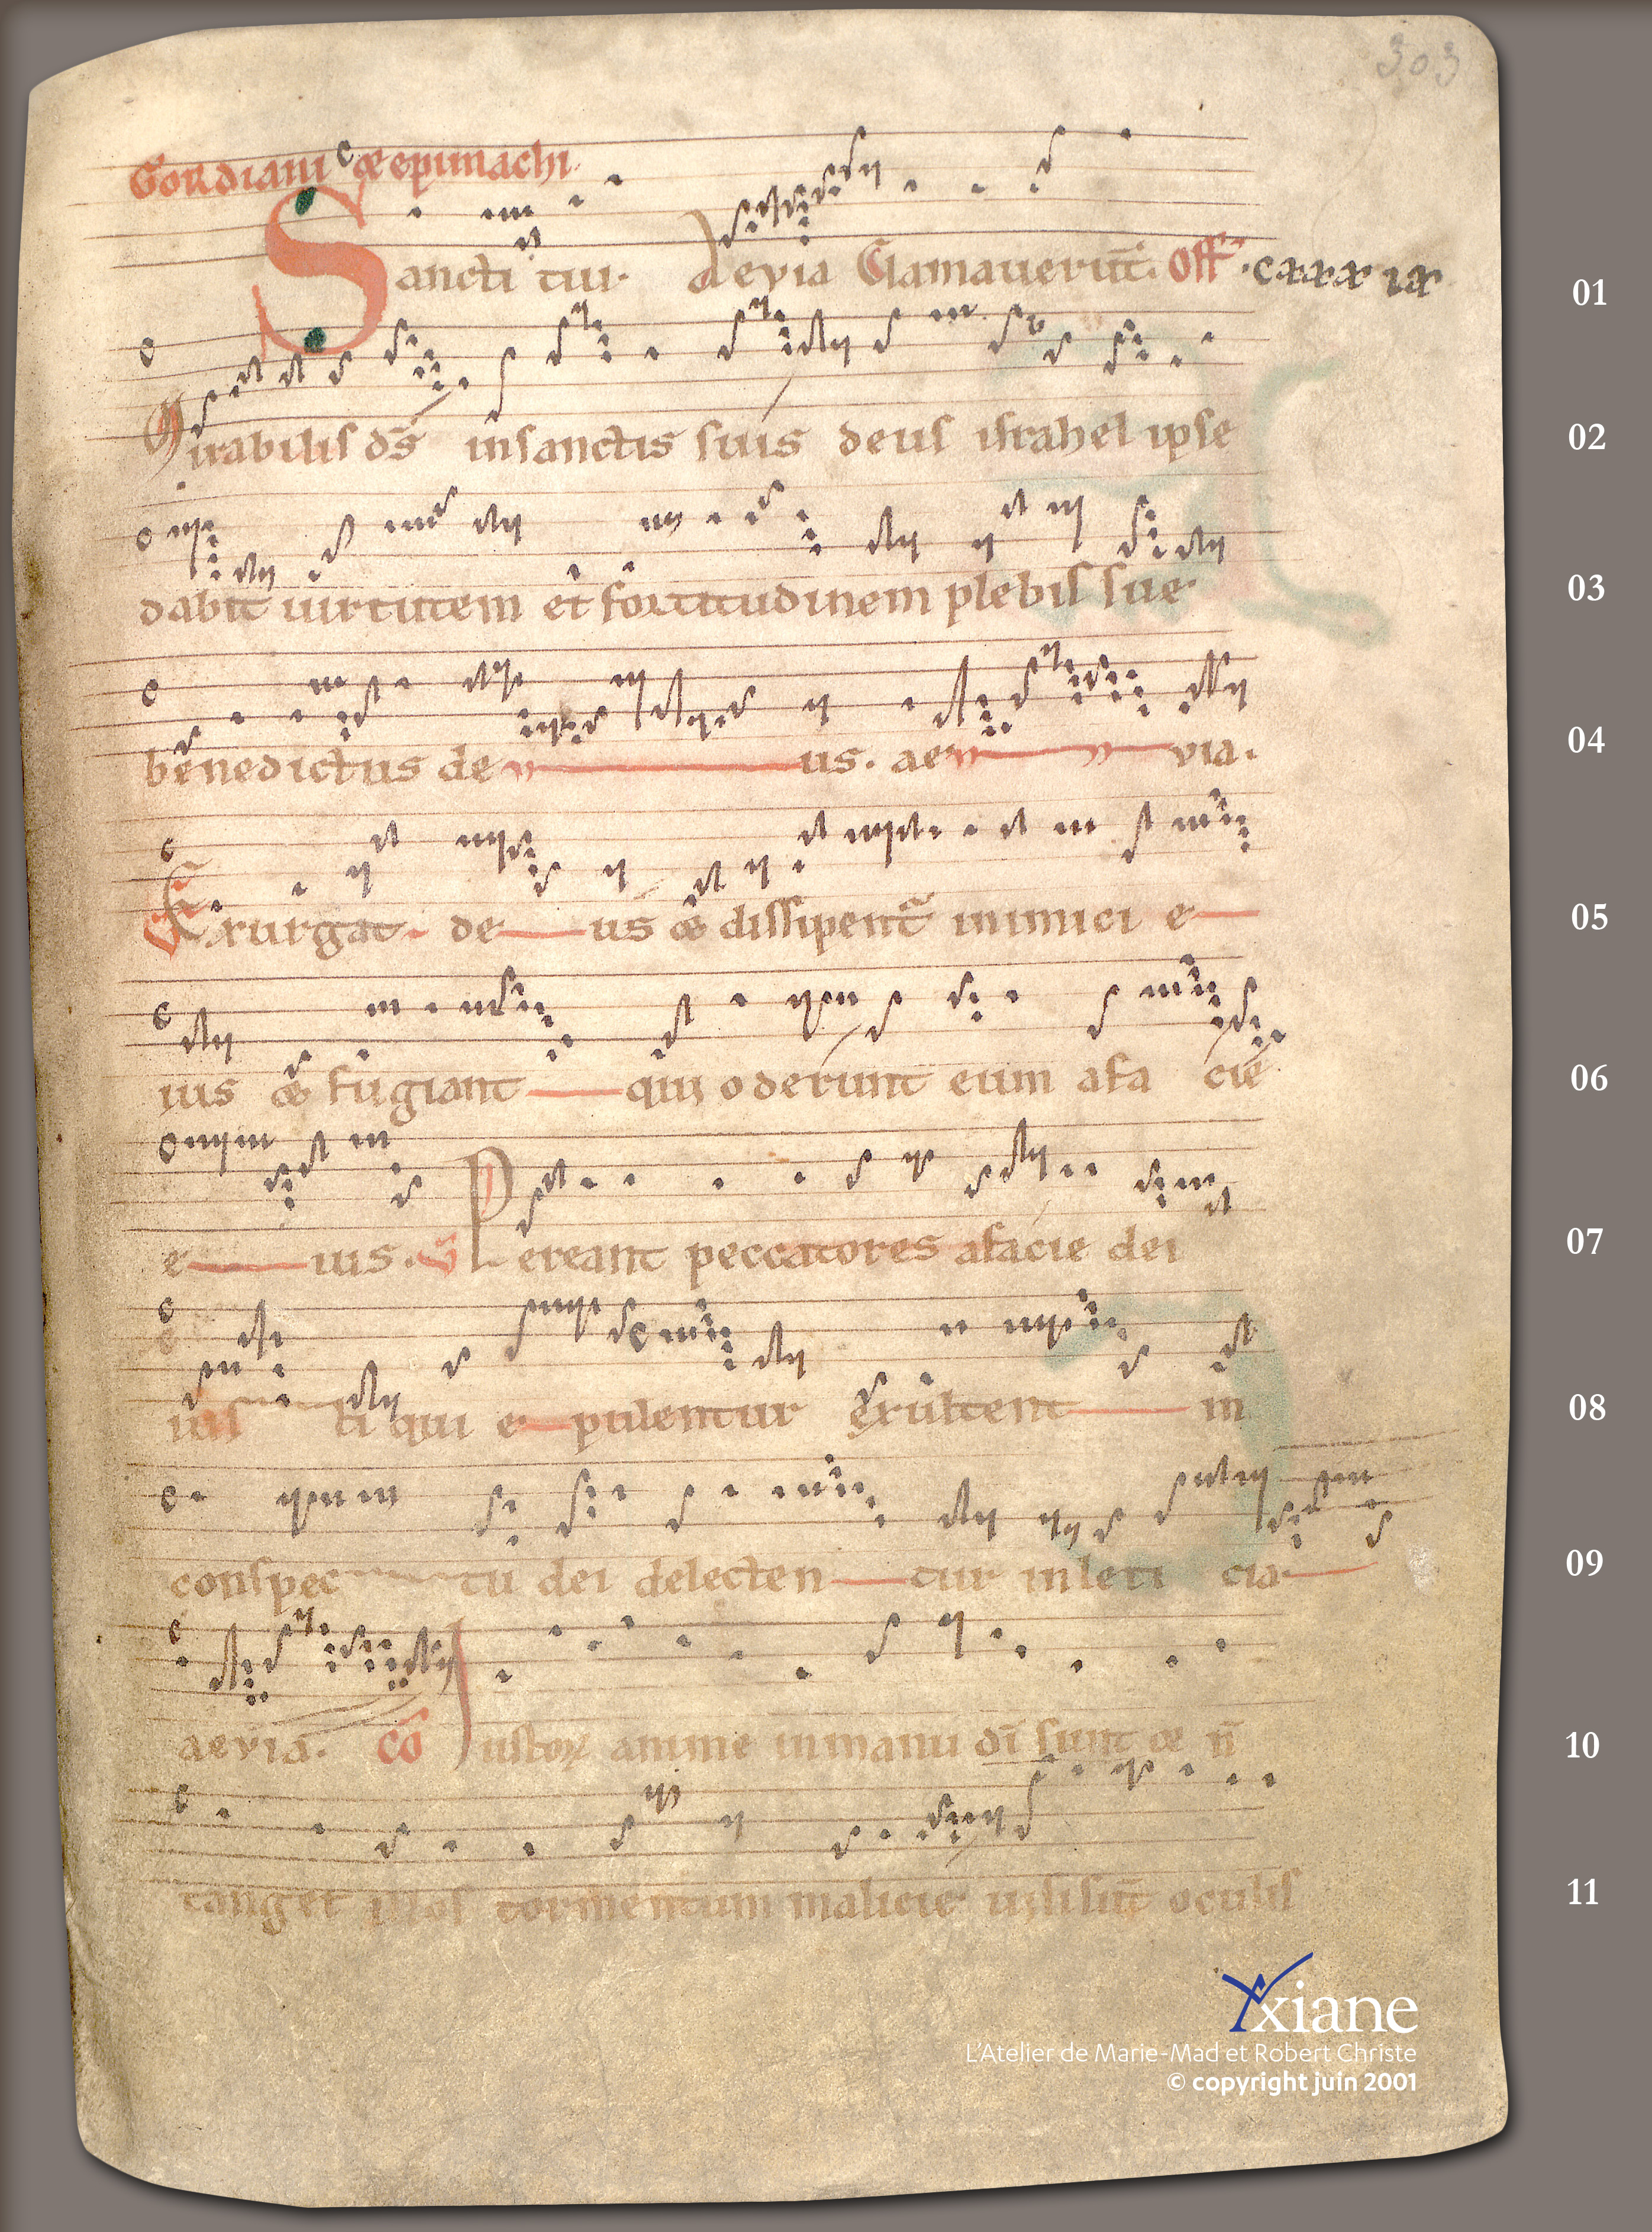 303
Gordiani &epimachi.
Sancti tui. Aevia Clamauerūt. Off.
01
Mirabilis ds̄ insanctis suis deus israhel ipse
02
dabit uirtutem et fortitudinem plebis sue.
03
benedictus de us. ae via.
04
Exurgat de us & dissipent inimici e
05
ius & fugiant qui oderunt eum afa cie
06
e ius. V̄ Pereant peccatores afacie dei
07
ius ti qui e pulentur exultent in
08
conspec tu dei delecten tur inleti cia
09
aevia. Cō Iustoꝝ anime inmanu dī sunt & n̄
10
tanget illos tormentum malicie uisisūt oculis
11
Yxiane
L'Atelier de Marie-Mad et Robert Christe
© copyright juin 2001